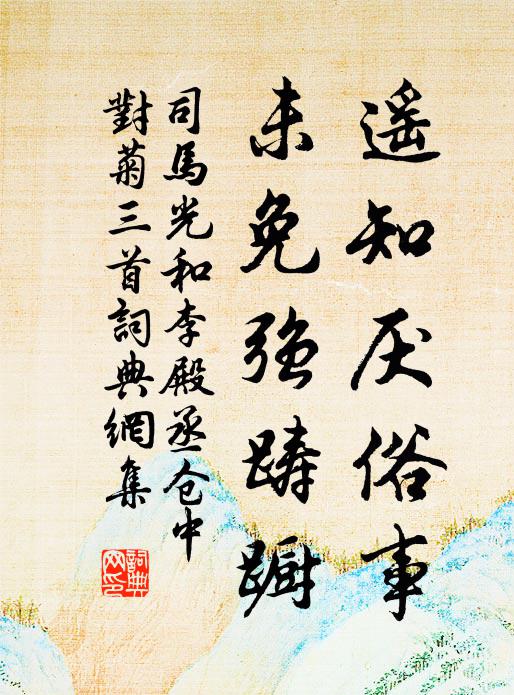 遥知厌俗事
未免強踌蹰
司馬光和李殿丞仓中
對菊三首詞典網集
詞典
网印